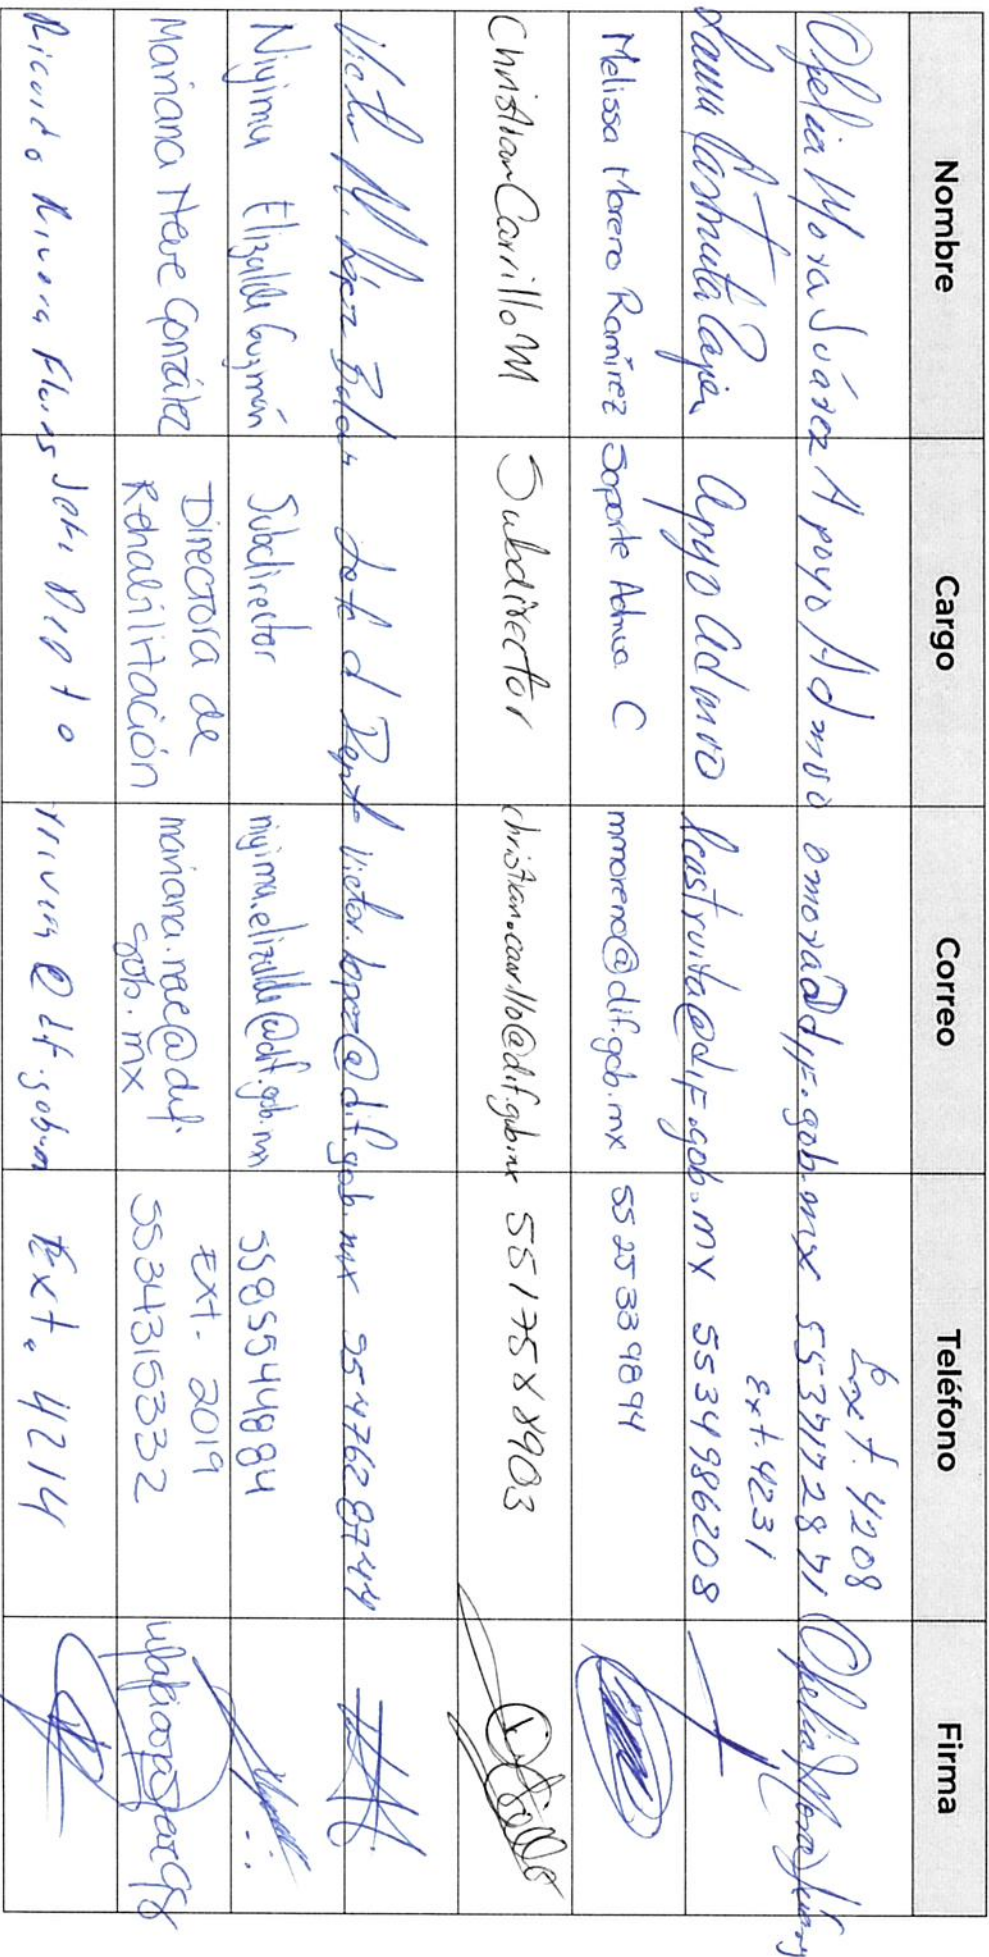 Nombre Cargo Correo Teléfono Firma
Ext. 4208
Ofelia Mora Suárez Apoyo Admvo omora@dif.gob.mx 5537172871 Ofelia Mora Suárez
Ext. 4231
Laura Castruita Apoyo admvo lcastruita@dif.gob.mx 5534986208
Melissa Moreno Ramírez Soporte Admvo C mmoreno@dif.gob.mx 5525339894
Christian Carrillo M Subdirector christian.carrillo@dif.gob.mx 5517588903
Victor M. López Jefe d Depto victor.lopez@dif.gob.mx 9547628744
Niyimu Elizalde Guzmán Subdirector niyimu.elizalde@dif.gob.mx 5585544884
Mariana Neve González Directora de Rehabilitación mariana.neve@dif.gob.mx Ext. 2019
5534315332
Ricardo Rivera Flores Jefe Depto rrivera@dif.gob.m Ext. 4214